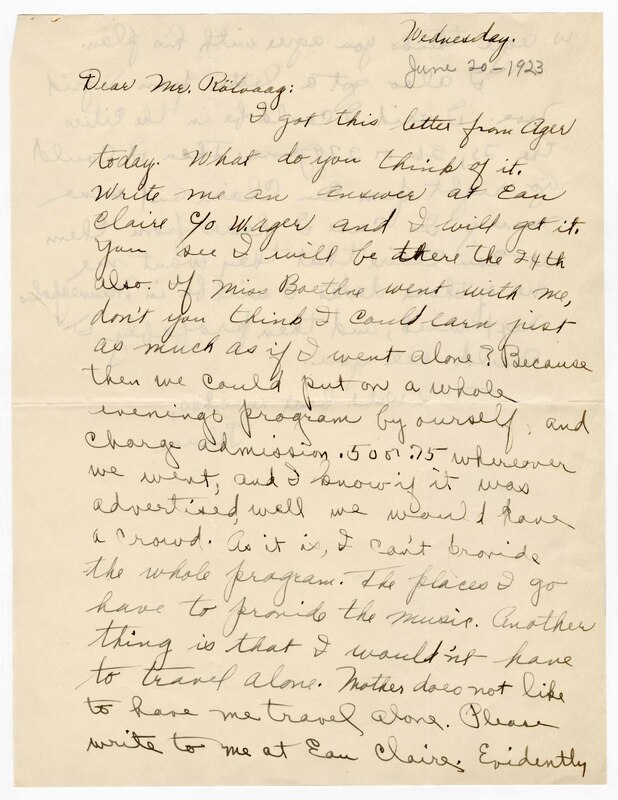 Wednesday.
June 20-1923
Dear Mr. Rölvaag:
I got this letter from Ager
today. What do you think of it.
Write me an answer at Eau
Claire c/o W. Ager and I will get it.
You see I will be there the 24th
also. If Miss Boethne went with me,
don't you think I could earn just
as much as if I went alone? Because
then we could put on a whole
evenings program by ourself, and
charge admission .50 or .75 wherever
we went, and I know if it was
advertised well we would have
a crowd. As it is, I can't provide
the whole program. The places I go
have to provide the music. Another
thing is that I would'nt have
to travel alone. Mother does not like
to have me travel alone. Please
write to me at Eau Claire. Evidently